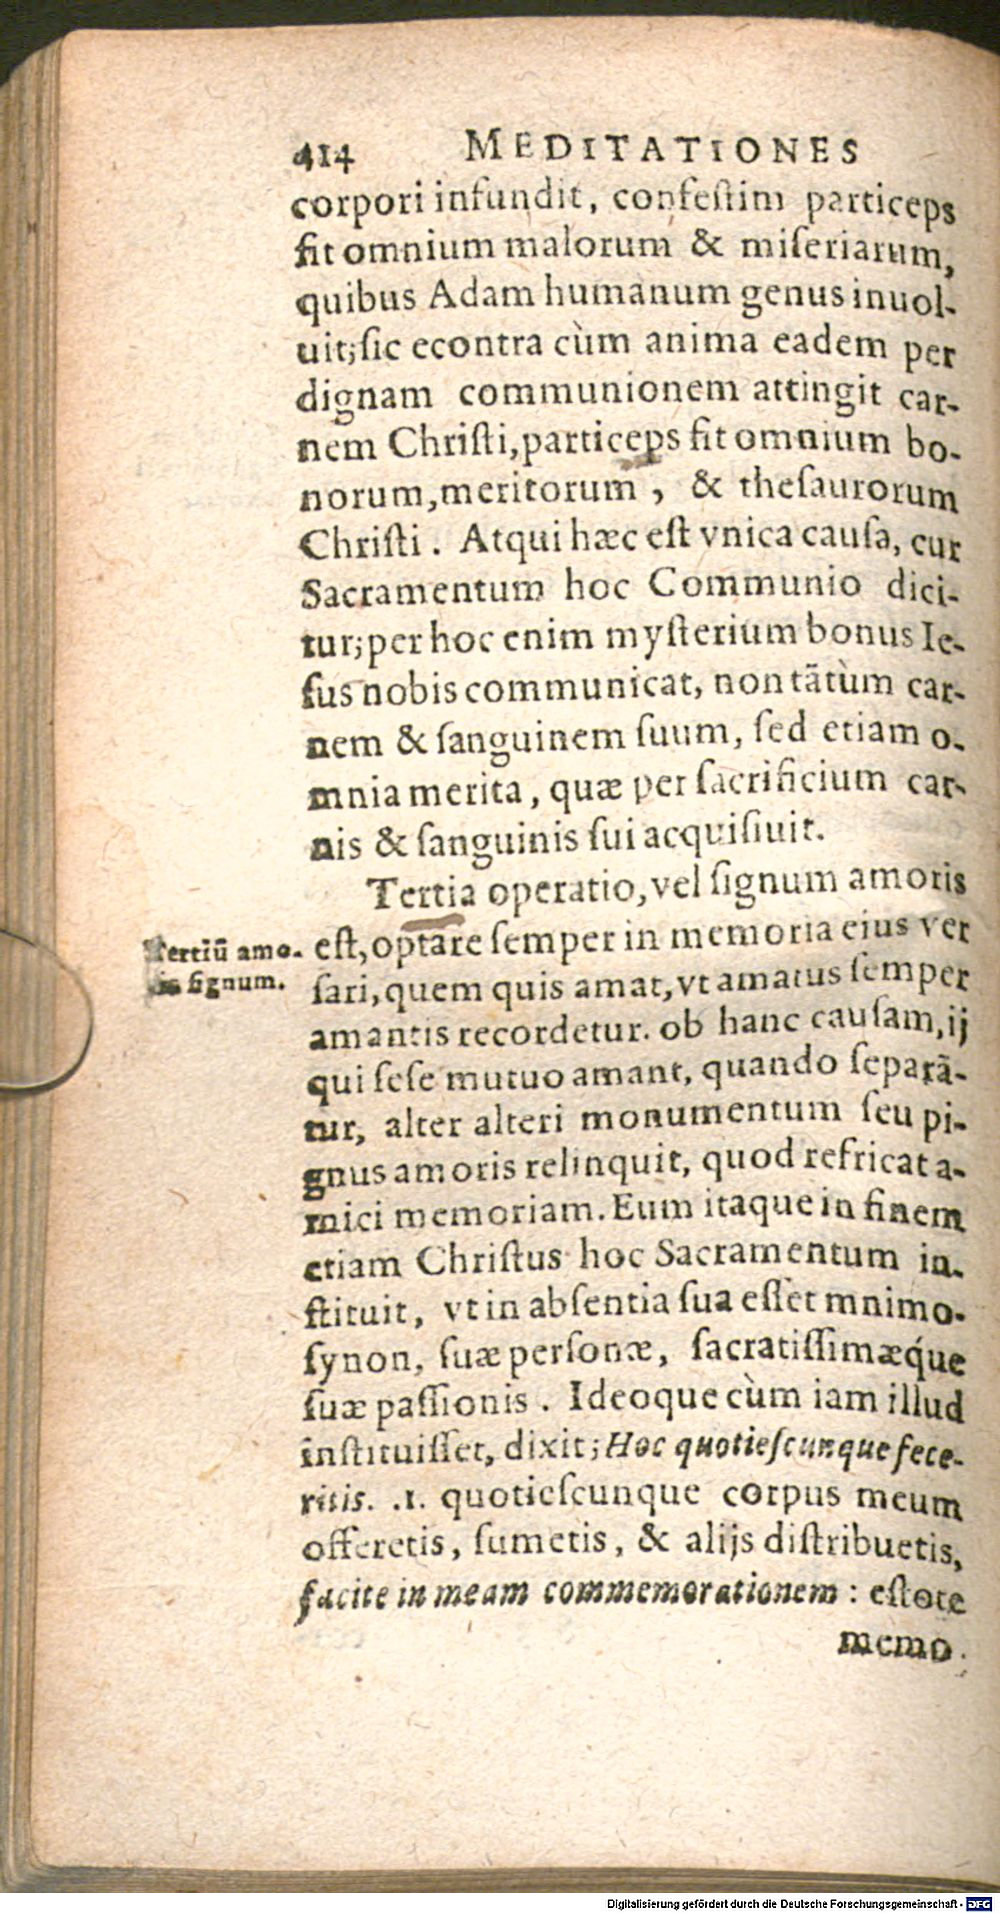 414 MEDITATIONES
corpori infundit, confeſtim particeps
fit omnium malorum & miſeriarum,
quibus Adam humanum genus inuol-
uit; ſic econtra cùm anima eadem per
dignam communionem attingit car-
nem Chriſti, particeps fit omnium bo-
norum, meritorum, & theſaurorum
Chriſti. Atqui hæc eſt vnica cauſa, cur
Sacramentum hoc Communio dici-
tur; per hoc enim myſterium bonus Ie-
ſus nobis communicat, non tãtùm car-
nem & ſanguinem ſuum, ſed etiam o-
mnia merita, quæ per ſacrificium car-
nis & ſanguinis ſui acquiſiuit.
Tertia operatio, vel ſignum amoris
eſt, optare ſemper in memoria eius ver
ſari, quem quis amat, vt amatus ſemper
amantis recordetur. ob hanc cauſam, ij
qui ſeſe mutuo amant, quando ſeparã-
tur, alter alteri monumentum ſeu pi-
gnus amoris relinquit, quod refricat a-
mici memoriam. Eum itaque in finem
etiam Chriſtus hoc Sacramentum in-
ſtituit, vt in abſentia ſua eſſet mnimo-
ſynon, ſuæ perſonæ, ſacratiſſimæq́ue
ſuæ paſſionis. Ideoque cùm iam illud
inſtituiſſet, dixit; Hoc quotieſcunque fece-
ritis. .1. quotieſcunque corpus meum
offeretis, ſumetis, & alijs diſtribuetis,
facite in meam commemorationem: eſtote
memo
Tertiũ amo-
ris ſignum.
Digitalisierung gefördert durch die Deutsche Forschungsgemeinschaft - DFG